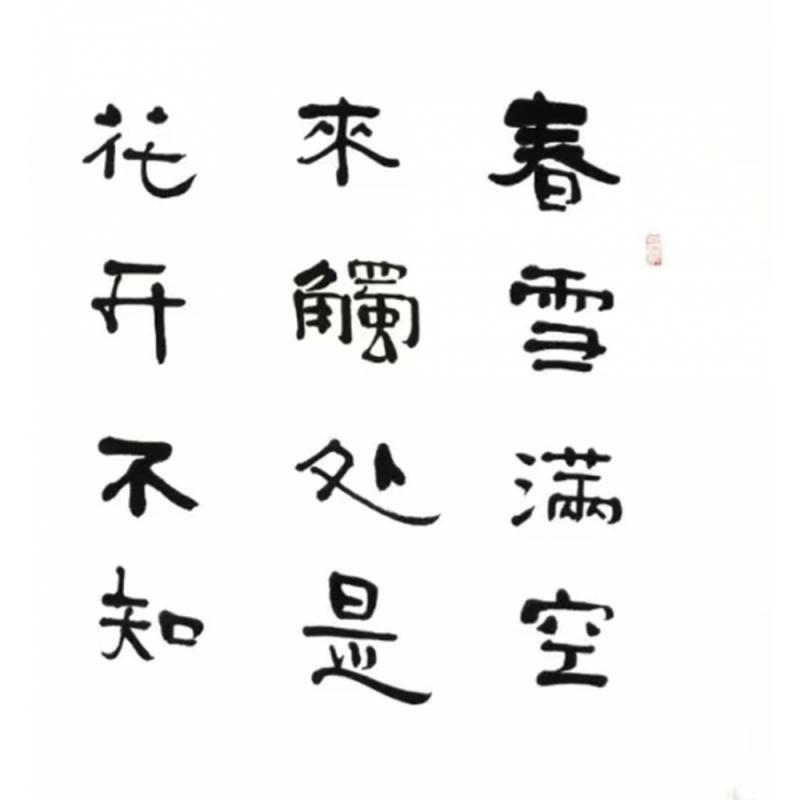 春雪满空
來觸处是
花开不知